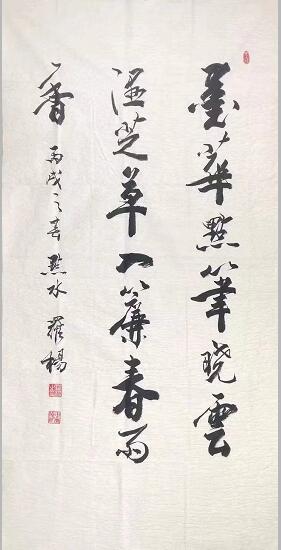 墨華點筆晓雲
湿芝草入簾春雨
香 丙戌之春點水 羅楊